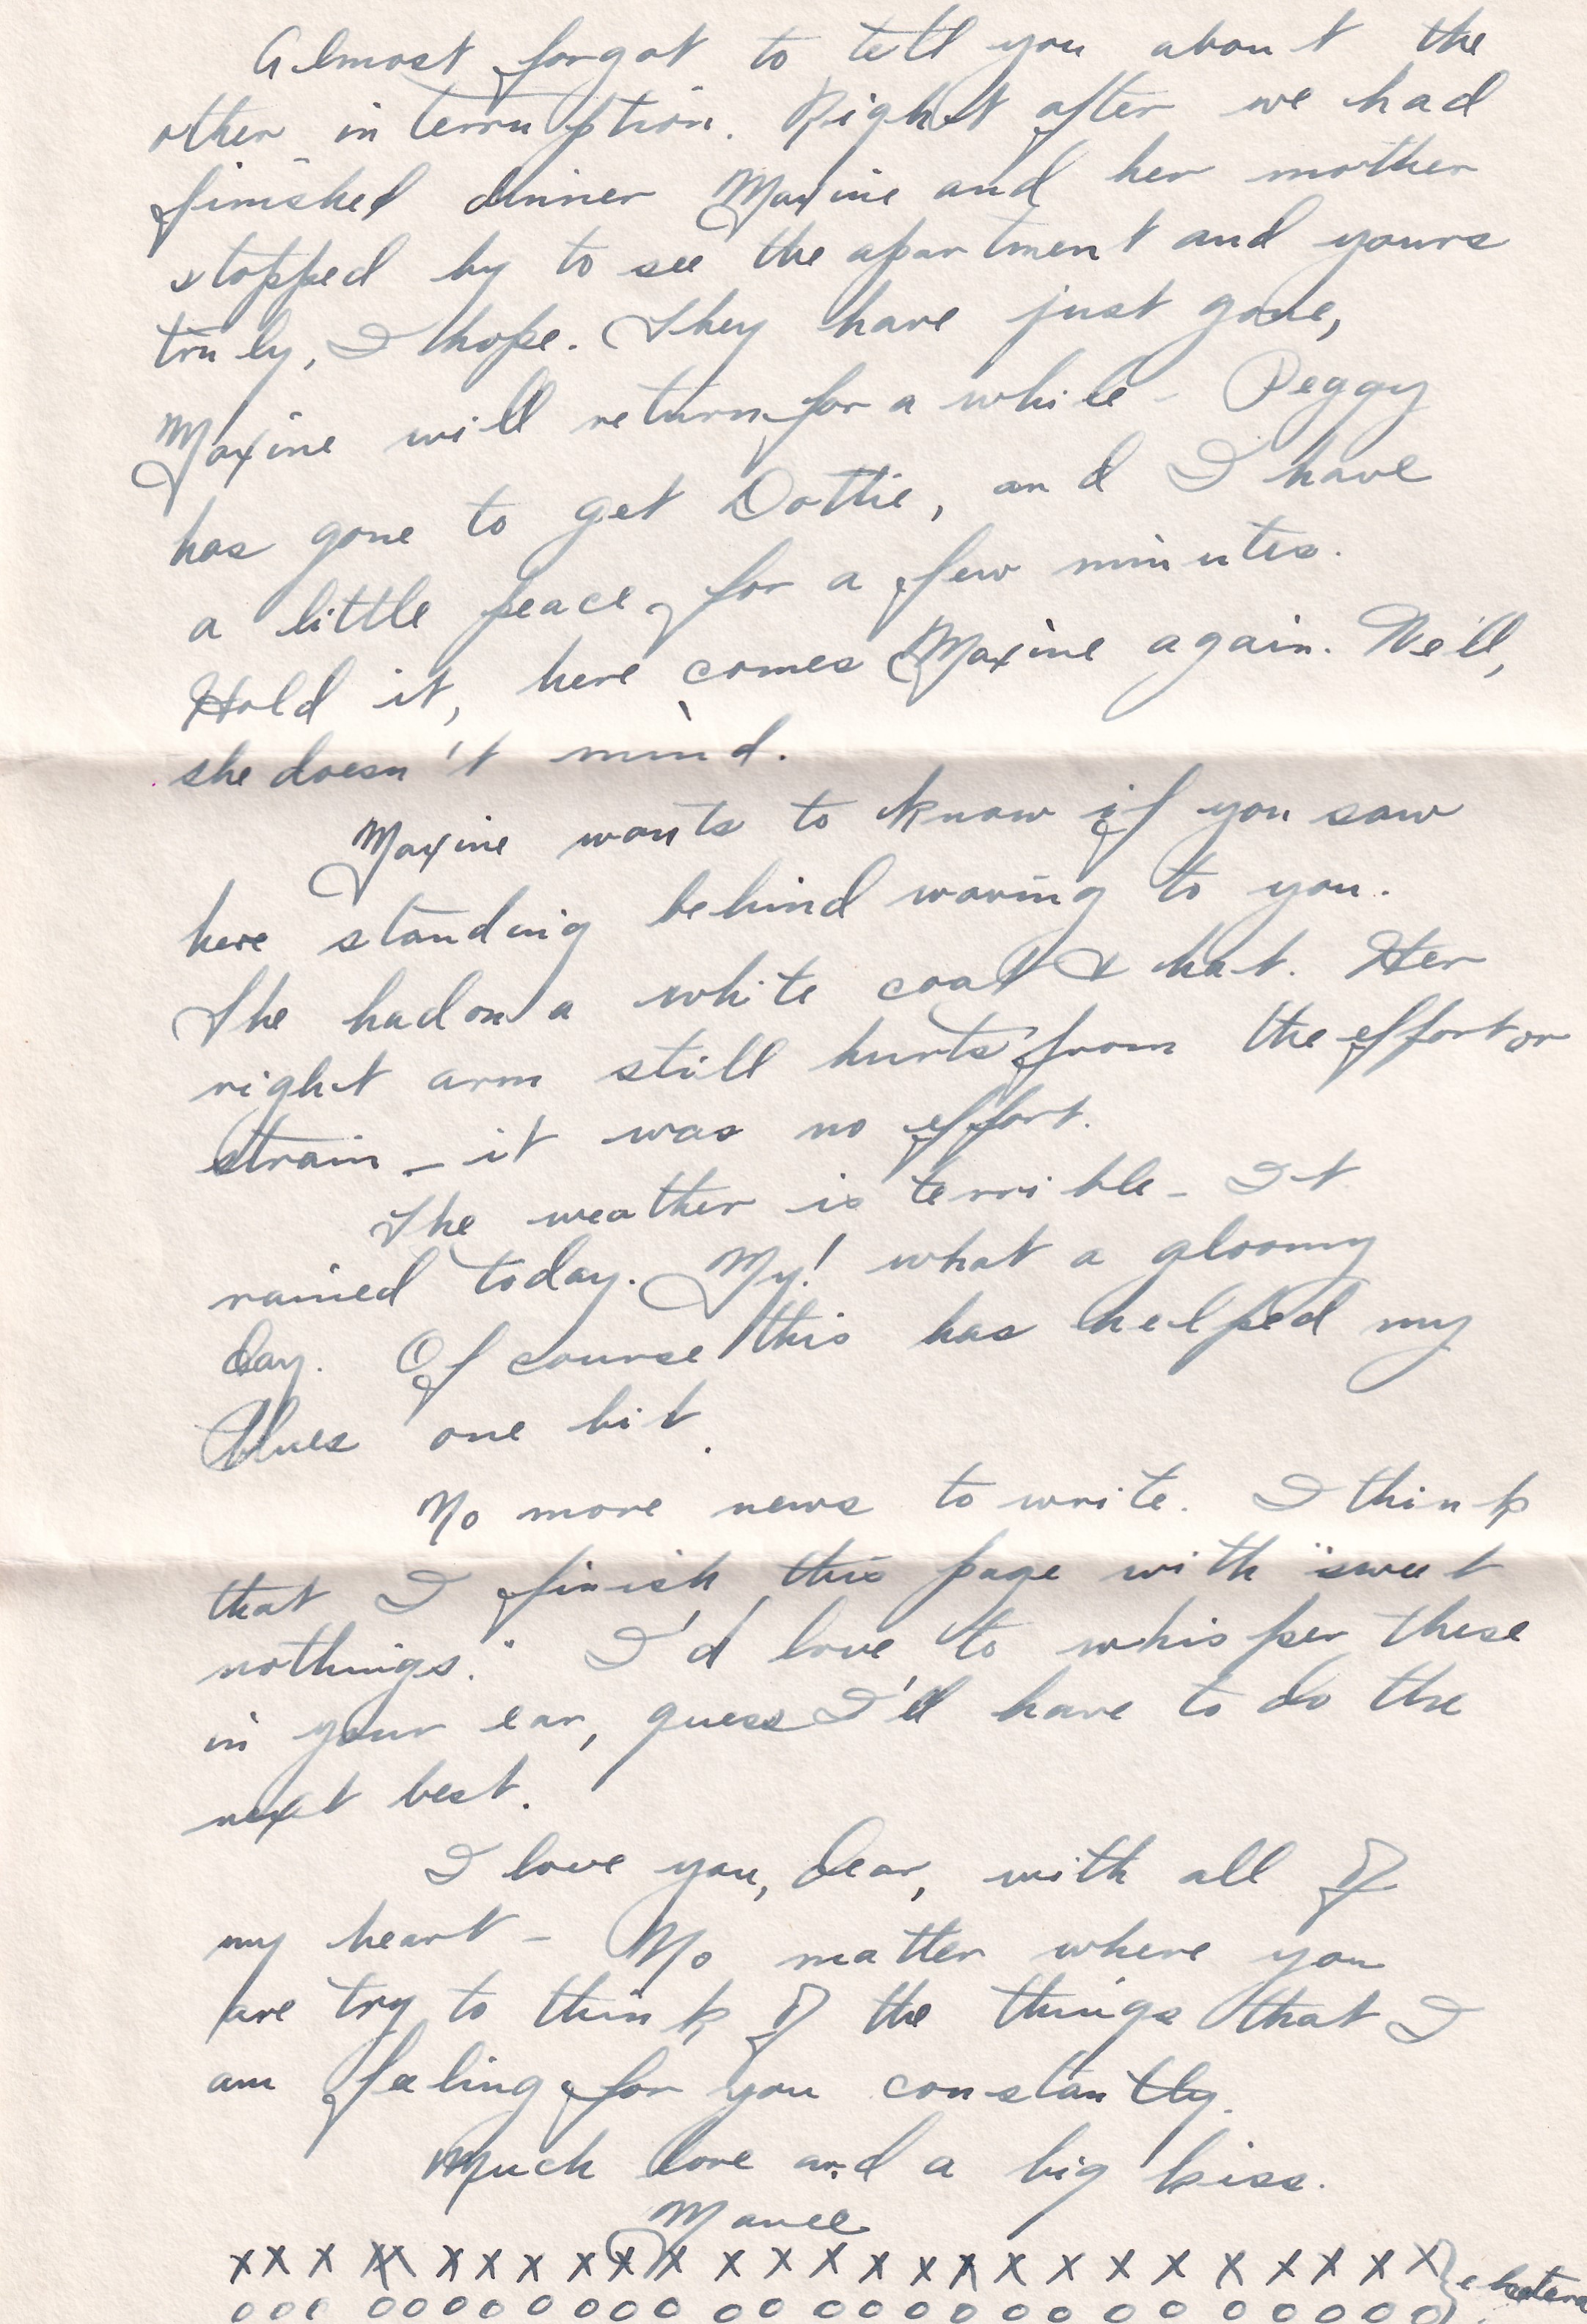 Almost forgot to tell you about the
other interruption. Right after we had
finished dinner Maxine and her mother
stopped by to see the apartment and yours
truly, I hope. They have just gone,
Maxine will return for a while - Peggy
has gone to get Dottie, and I have
a little peace for a few minutes.
Hold it, here comes Maxine again. Well,
she doesn't mind.
Maxine wants to know if you saw
here standing behind waving to you.
She had on a white coat & hat. Her
right arm still hurts from the effort or
strain - it was no effort.
The weather is terrible - It
rained today. My! what a gloomy
day. Of course this has helped my
blues one bit.
No more news to write. I think
that I finish this page with "sweet
nothings." I'd love to whisper these
in your ear, guess I'll have to do the
next best.
I love you, dear, with all of
my heart - No matter where you
are try to think of the things that I
am feeling for you constantly.
Much love and a big kiss.
x x x x x x x x x x x x x x x x x x x x x x x x x x
o o o o o o o o o o o o o o o o o o o o o o o o o o o